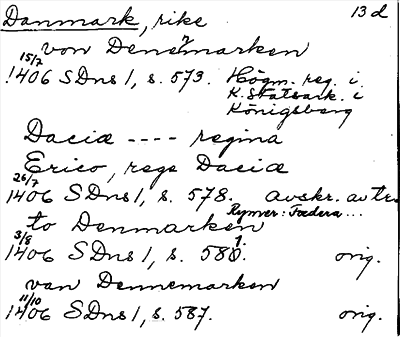 Danmark, rike 13 d
von Denemarken
15/7
1406 SDns 1, s. 573. Högm. reg. i
K. Statsark. i
Königsberg
Daciæ ---- regina
Erico, rege Daciæ
26/7
1406 SDns 1, s. 578. avskr. av tr.
Rymer: Foedera ...
to Denmarken
3/8
1406 SDns 1, s. 581. orig.
van Dennemarken
11/10
1406 SDns 1, s. 587. orig.